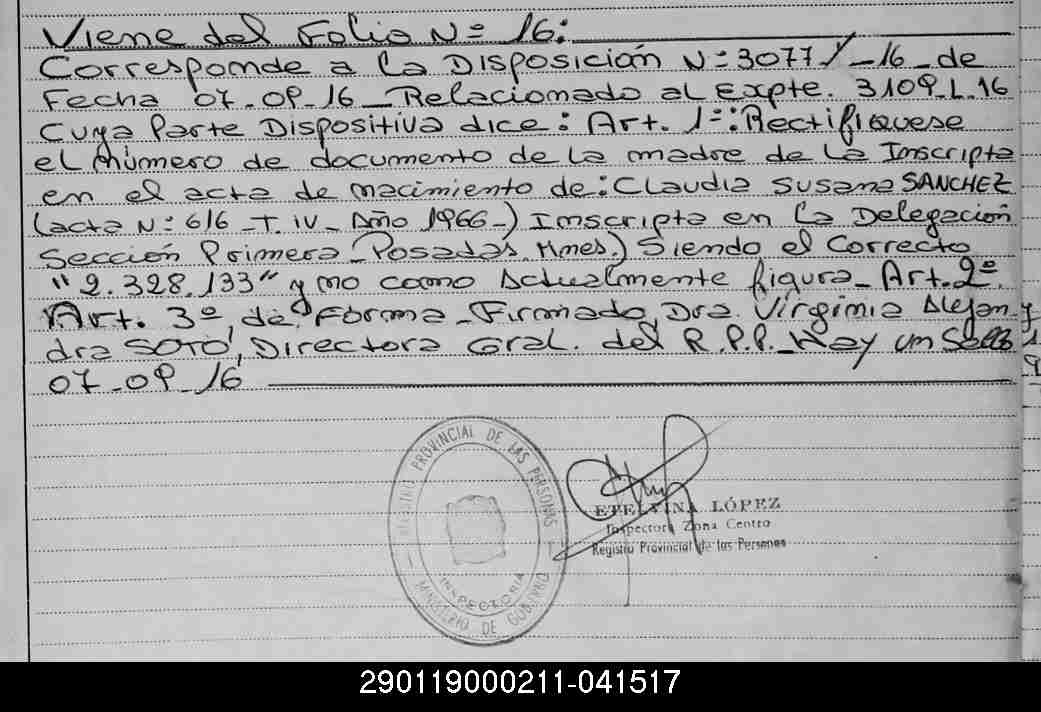 Viene del Folio N= 16:
Corresponde a la Disposición N=3077/-16-de
Fecha 07-09-16_Relacionado al Expte. 3109-L-16
Cuya Parte Dispositiva dice: Art. 1=:Rectifiquese
el número de documento de la madre de la Inscripta
en el acta de nacimiento de: Claudia Susana SANCHEZ
(acta N=616-T.IV-Año 1966-) Inscripta en la Delegación
Sección Primera-Posadas, Mnes.) Siendo el Correcto
"2.328.133" y no como Actualmente figura-Art.2º.
Art. 3º, de Forma-Firmado, Dra. Virginia Alejan-
dra SOTO, Directora Gral. del R.P.P._Hay un Sello
07-09-16
REGISTRO PROVINCIAL DE LAS PERSONAS
INSPECTORIA
MINISTERIO DE GOBIERNO
ETELVINA LÓPEZ
Inspectora Zona Centro
Registro Provincial de las Personas
290119000211-041517